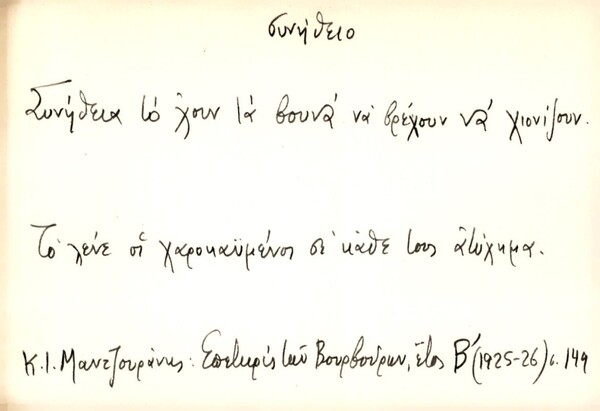 συνήθειο
Συνήθεια τό 'χουν τά βουνά νά βρέχουν νά χιονίζουν.
Τό λένε οἱ χαροκαϋμένοι σέ κάθε τους ἀτύχημα.
Κ.Ι. Μαντζουράνης: Ἐπετηρίς τῶν Βουρβούρων, ἔτος Β' (1925-26) σ. 149